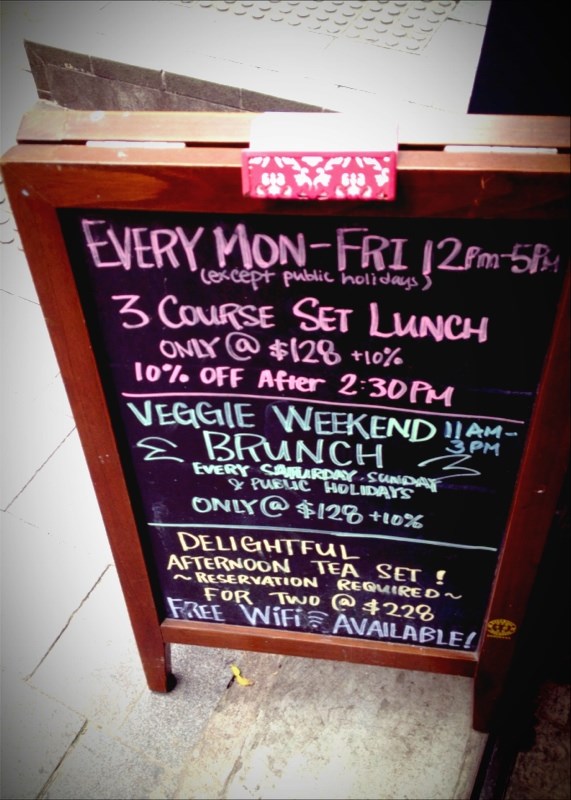 EVERY MON-FRI 12pm-5Pm
(except public holidays)
3 COURSE SET LUNCH
ONLY @ $128 +10%
10% OFF AFter 2:30PM
VEGGIE WEEKEND 11AM-3PM
BRUNCH
EVERY SATURDAY, SUNDAY
& PUBLIC HOLIDAYS
ONLY @ $128 +10%
DELIGHTFUL
AFTERNOON TEA SET !
~RESERVATION REQUIRED~
FOR TWO @ $228
FREE WiFi AVAILABLE!